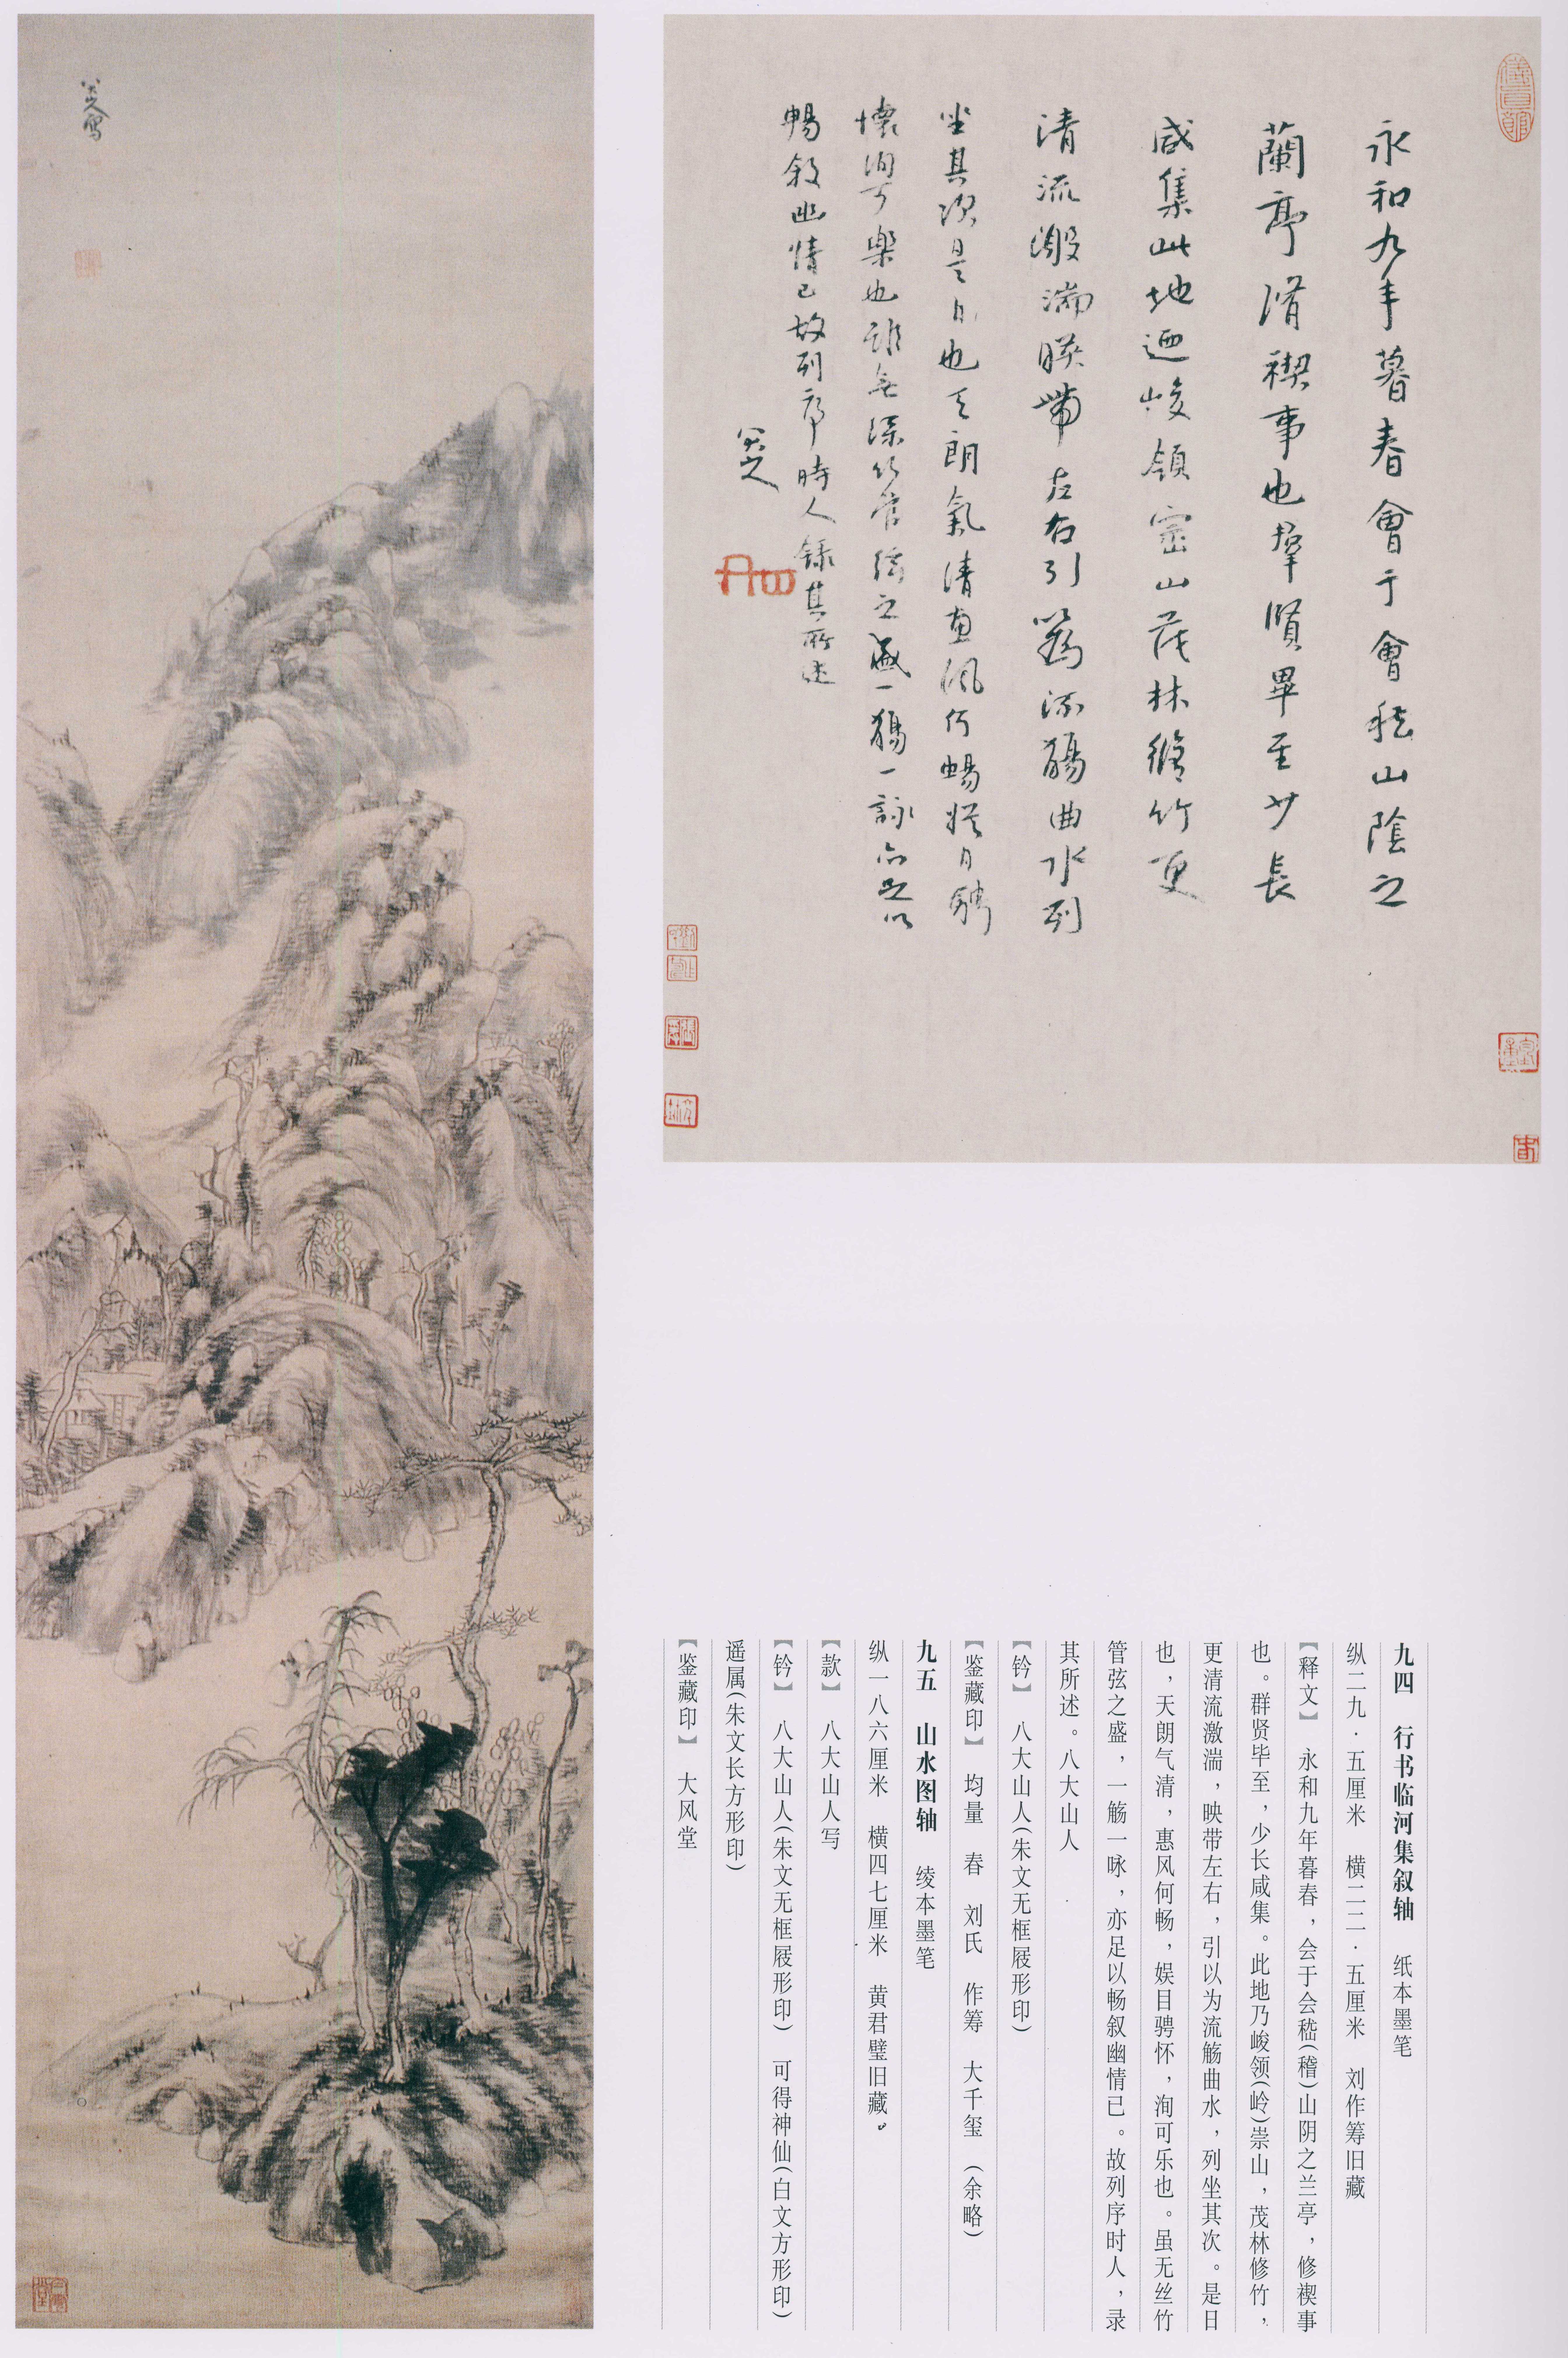 永和九年暮春會于會嵇山陰之
蘭亭脩禊事也羣賢畢至少長
咸集此地迺峻領崇山茂林脩竹更
清流激湍暎帶左右引以為流觴曲水列
坐其次是日也天朗氣清惠風何暢娛目騁
懷洵可樂也雖無絲竹管絃之盛一觴一詠亦足以
暢敘幽情已故列序時人錄其所述
八大山人
八大山人寫
九四　行书临河集叙轴　纸本墨笔
纵二九·五厘米　横二二·五厘米　刘作筹旧藏
【释文】　永和九年暮春，会于会嵇（稽）山阴之兰亭，修禊事
也。群贤毕至，少长咸集。此地乃峻领（岭）崇山，茂林修竹，
更清流激湍，映带左右，引以为流觞曲水，列坐其次。是日
也，天朗气清，惠风何畅，娱目骋怀，洵可乐也。虽无丝竹
管弦之盛，一觞一咏，亦足以畅叙幽情已。故列序时人，录
其所述。八大山人
【钤】　八大山人（朱文无框屐形印）
【鉴藏印】　均量　春　刘氏　作筹　大千玺　（余略）
九五　山水图轴　绫本墨笔
纵一八六厘米　横四七厘米　黄君璧旧藏。
【款】　八大山人写
【钤】　八大山人（朱文无框屐形印）　可得神仙（白文方形印）
遥属（朱文长方形印）
【鉴藏印】　大风堂